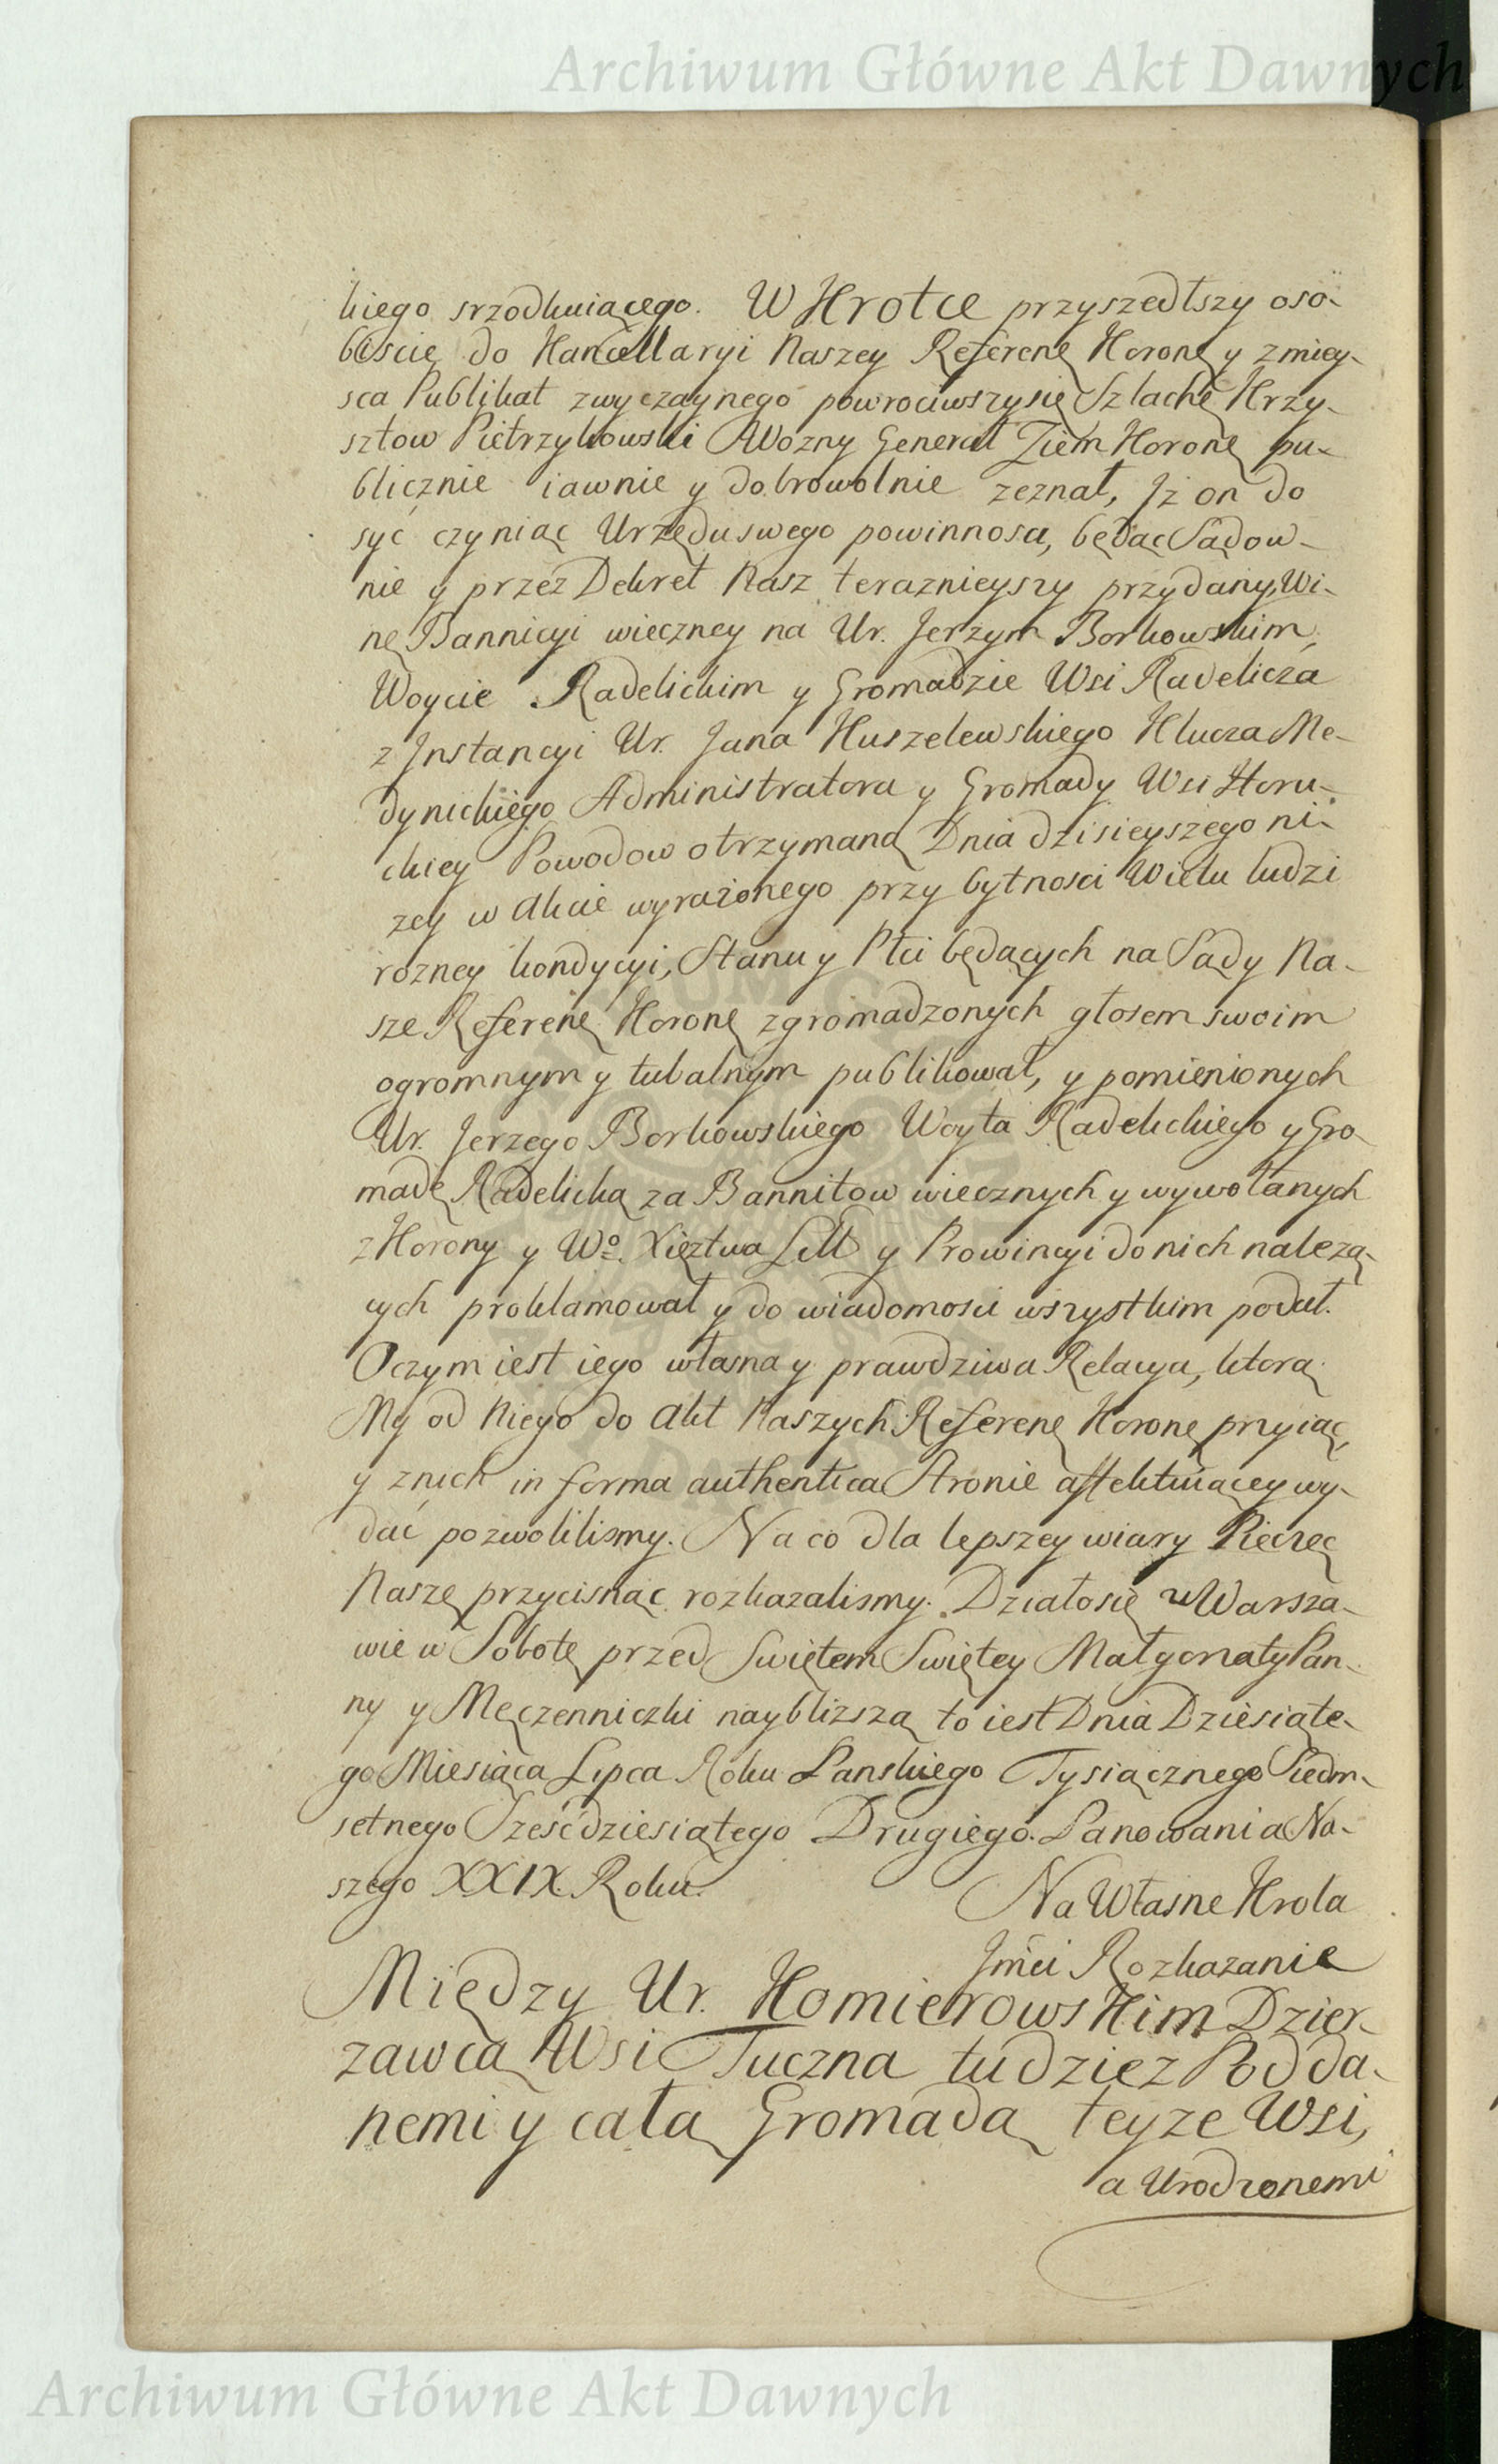 Archiwum Główne Akt Dawnych
kiego srzodkuiącego. W Krotce przyszedłszy oso-
biscie do Kancellaryi Naszey Referenę Koronę y z miey-
sca Publikat zwyczaynego powrociwszysię Szlachę Krzy-
sztow Pietrzykowski Wozny Generał Ziem Koronę pu-
blicznie iawnie y dobrowolnie zeznał, Iż on do
syć czyniąc Urzędu swego powinnosci, będąc Sądow-
nie y przez Dekret Nasz teraznieyszy przydany, Wi-
nę Bannicyi wieczney na Ur. Jerzym Borkowskim,
Woycie Radelickim y Gromadzie Wsi Radelicza
z Instancyi Ur. Jana Kuszelewskiego Klucza Me-
dynickiego Administratora y Gromady Wsi Horu-
ckiey Powodow otrzymaną Dnia dzisieyszego ni-
zey w Akcie wyrażonego przy bytnosci Wielu ludzi
rozney kondycyi, Stanu y Płci będących na Sądy Na-
sze Referenę Koronę zgromadzonych głosem swoim
ogromnym y tubalnym publikował, y pomienionych
Ur. Jerzego Borkowskiego Woyta Radelickiego y Gro-
madę Radelicką za Bannitow wiecznych y wywołanych
z Korony y Wo. Xięztwa Litt y Prowincyi do nich należą-
cych proklamował y do wiadomosci wszystkim podał.
O czym iest iego własna y prawdziwa Relacya, ktorą
My od Niego do Akt Naszych Referenę Koronę przyiąć,
y z nich in forma authentica Stronie affektuiącey wy-
dać pozwolilismy. Na co dla lepszey wiary Pieczęć
Naszę przycisnąć rozkazalismy. Działosię w Warsza-
wie w Sobotę przed Swiętem Swiętey Małgorzaty Pan-
ny y Męczenniczki naybliższą to iest Dnia Dziesiąte-
go Miesiąca Lipca Roku Panskiego Tysiącznego Siedm-
setnego Sześćdziesiątego Drugiego. Panowania Na-
szego XXIX Roku.
Na Własne Krola
Jmci Rozkazanie
Między Ur. Komierowskim Dzier-
zawcą Wsi Tuczna tudziez Podda-
nemi y całą Gromadą teyze Wsi,
a Urodzonemi
Archiwum Główne Akt Dawnych